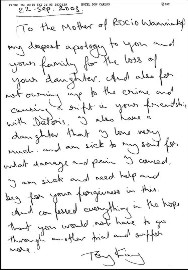 HOTEL DON CARLOS
22-SEP. 2003
To the Mother of ROCIO Wanninkh
my deepest apology to you and
your family for the loss of
your daughter. And also for
not owning up to the crime and
causing a split in your friendship
with Dolores. I also have a
daughter that I love very
much and am sick to my self for
what damage and pain I caused.
I am sick and need help and
beg for your forgiveness in this.
And confessed everything in the hope
that you would not have to go
through another trial and suffer
more
Tony King